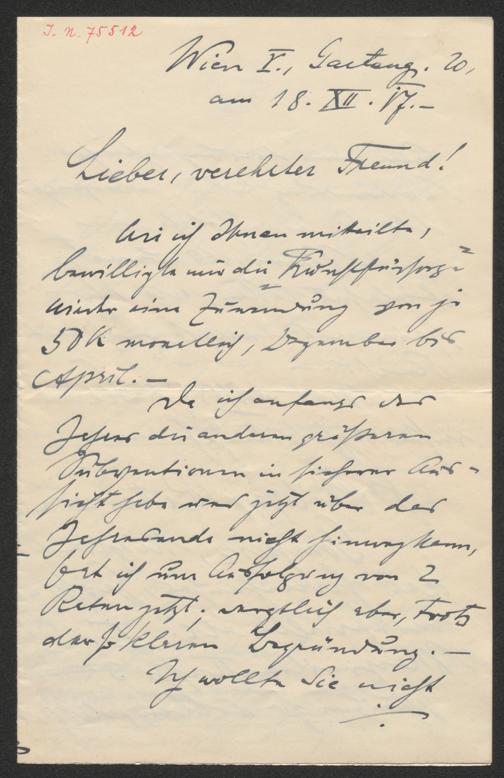 I. N. 75512
Wien V., Garteng. 20,
am 18. XII. 17.–
Lieber, verehrter Freund!
Wie ich Ihnen mitteilte,
bewilligte mir die „Kunstfürsorge“
wieder eine Zuwendung von je
50 K monatlich, Dezember bis
April.–
Da ich anfangs des
Jahres die anderen größeren
Subventionen in sicherer Aus=
sicht habe und jetzt über das
Jahresende nicht hinwegkann,
bat ich um Ausfolgung von 2
Raten jetzt; vergeblich aber, trotz
der so klaren Begründung.–
Ich wollte Sie nicht